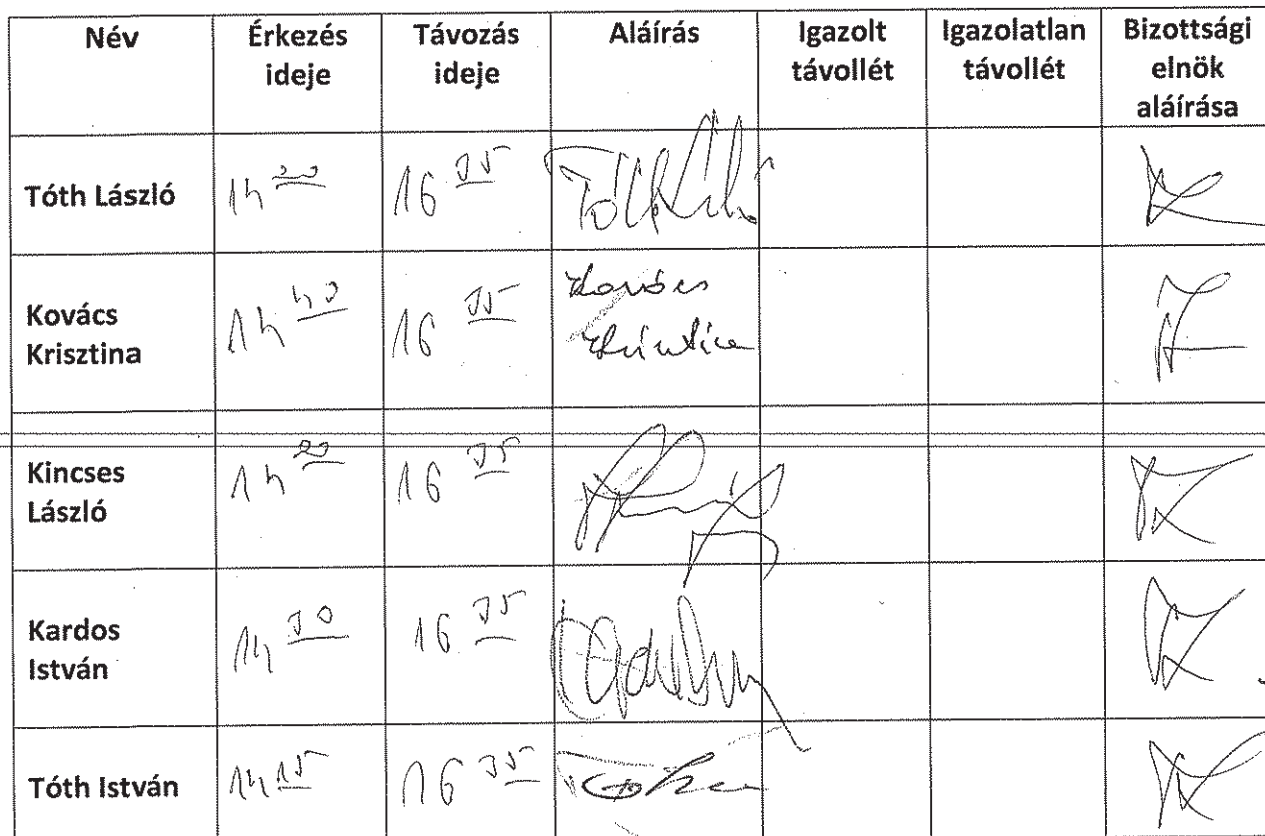 Név Érkezés ideje Távozás ideje Aláírás Igazolt távollét Igazolatlan távollét Bizottsági elnök aláírása
Tóth László 14 16 35
Kovács Krisztina 14 40 16 35 Kovács Krisztina
Kincses László 14 20 16 35
Kardos István 14 30 16 35
Tóth István 14 15 16 35